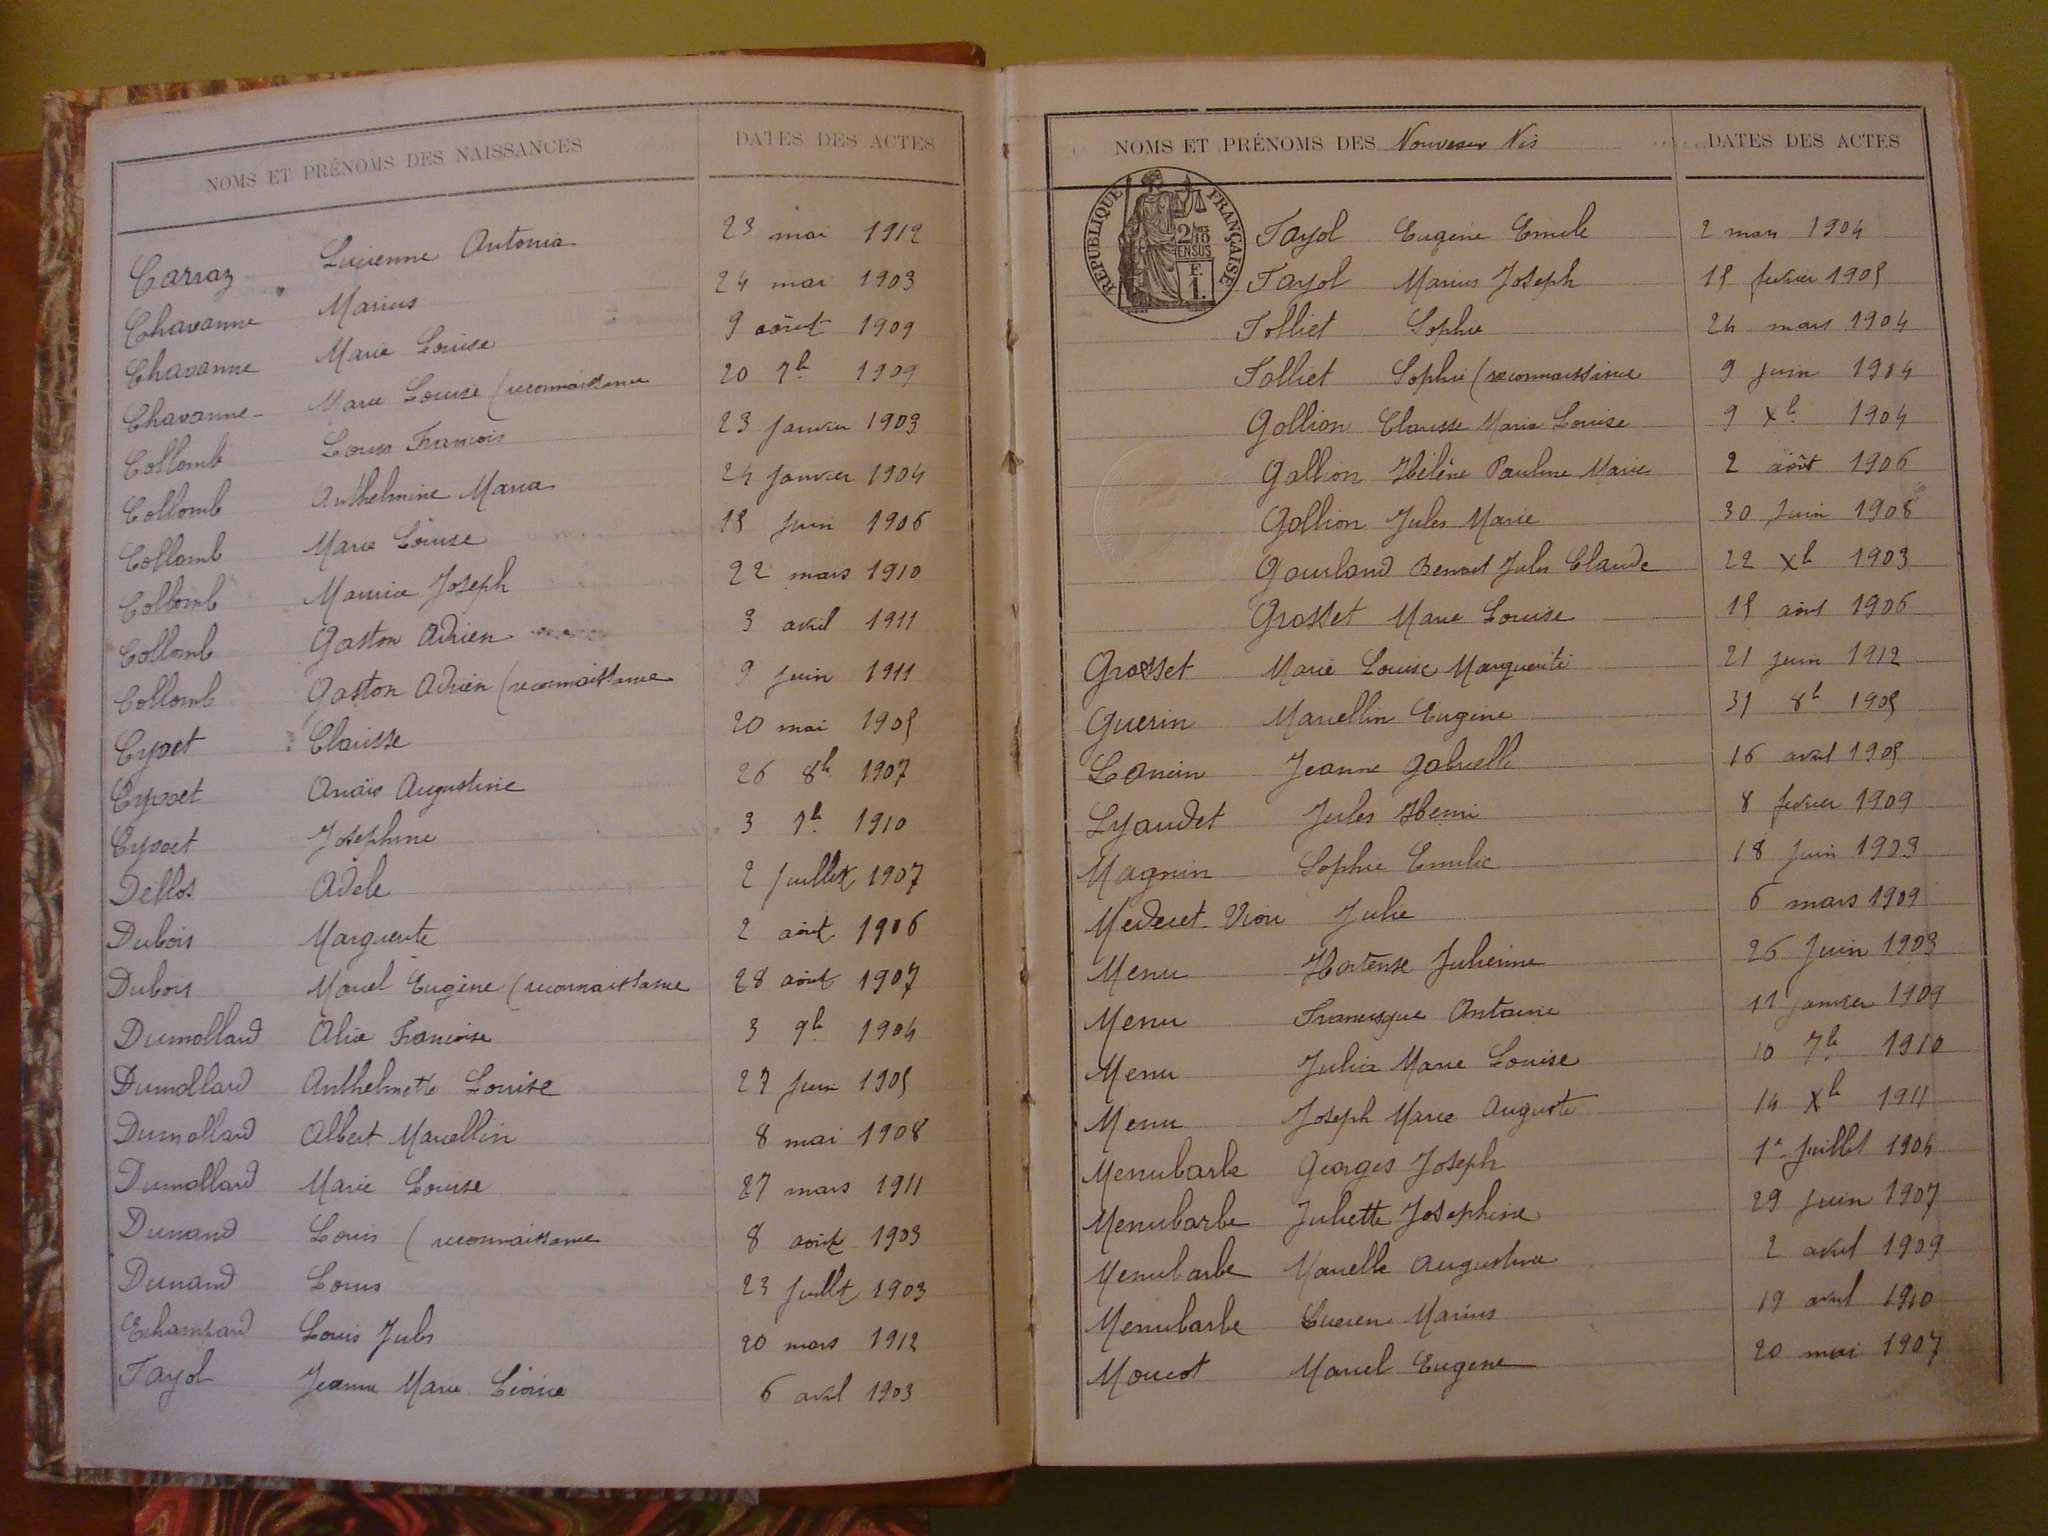 NOMS ET PRÉNOMS DES NAISSANCES DATES DES ACTES
Carraz Lucienne Antonia 23 mai 1912
Chavanne Marius 24 mai 1903
Chavanne Marie Louise 9 août 1909
Chavanne Marie Louise (reconnaissance 20 7b 1909
Collomb Louis François 23 janvier 1903
Collomb Anthelmine Maria 24 janvier 1904
Collomb Marie Louise 15 juin 1906
Collomb Maurice Joseph 22 mars 1910
Collomb Gaston Adrien 3 avril 1911
Collomb Gaston Adrien (reconnaissance 9 juin 1911
Cyvoct Clarisse 20 mai 1905
Cyvoct Anaïs Augustine 26 8b 1907
Cyvoct Joséphine 3 7b 1910
Dellos Adèle 2 juillet 1907
Dubois Marguerite 2 août 1906
Dubois Marcel Eugène (reconnaissance 28 août 1907
Dumollard Alice Françoise 3 9b 1904
Dumollard Anthelmette Louise 27 juin 1905
Dumollard Albert Marcellin 8 mai 1908
Dumollard Marie Louise 27 mars 1911
Dunand Louis (reconnaissance 8 août 1903
Dunand Louis 23 juillet 1903
Louis Jules 20 mars 1912
Fayol Jeanne Marie 6 avril 1903
NOMS ET PRÉNOMS DES Nouveaux Nés DATES DES ACTES
RÉPUBLIQUE FRANÇAISE
2/10 EN SUS
F. 1.
Fayol Eugène Emile 2 mars 1904
Fayol Marius Joseph 15 février 1905
Folliet Sophie 24 mars 1904
Folliet Sophie (reconnaissance 9 juin 1904
Gollion Clarisse Marie Louise 9 Xb 1904
Gollion Hélène Pauline Marie 2 août 1906
Gollion Jules Marie 30 juin 1908
Gourland Benoit Jules Claude 22 Xb 1903
Grosset Marie Louise 15 août 1906
Grosset Marie Louise Marguerite 21 juin 1912
Guerin Marcellin Eugène 31 8b 1905
Lancin Jeanne Gabrielle 16 avril 1905
Lyaudet Jules Henri 8 février 1909
Magnin Sophie Emilie 18 juin 1903
Julie 6 mars 1909
Menu Hortense Julienne 26 juin 1903
Menu Francisque Antoine 11 janvier 1909
Menu Julia Marie Louise 10 7b 1910
Menu Joseph Marie Auguste 14 Xb 1911
Menubarbe Georges Joseph 1er juillet 1904
Menubarbe Juliette Joséphine 29 juin 1907
Menubarbe Marcelle Augustine 2 avril 1909
Menubarbe Lucien Marius 19 avril 1910
Moucot Marcel Eugène 20 mai 1907